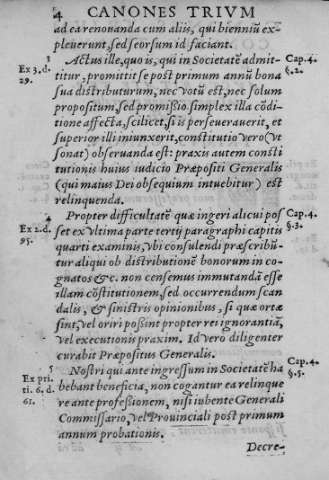 4 CANONES TRIVM
ad ea renonanda cum aliis, qui bienniū ex-
pleuerunt, sed seorsum id faciant.
3
Ex 3. d.
29.
Actus ille, quo is, qui in Societatē admit-
titur, promittit se post primum annū bona
sua distributurum, nec votū est, nec solum
propositum, sed promißio simplex illa cōdi-
tione affecta, scilicet, si is perseuerauerit, et
superior illi iniunxerit, constitutio vero (vt
sonat) obseruanda est: praxis autem consti
tutionis huius iudicio Præpositi Generalis
(qui maius Dei obsequium intuebitur) est
relinquenda.
Cap. 4.
§. 2.
4
Ex 2. d.
95.
Propter difficultatē quæ ingeri alicui pos
set ex vltima parte tertij paragraphi capitis
quarti examinis, vbi consulendi præscribū-
tur aliqui ob distributionē bonorum in co-
gnatos &c. non censemus immutandā esse
illam cōstitutionem, sed occurrendum scan
dalis, & sinistris opinionibus, si quæ ortæ
sint, vel oriri poßint propter rei ignorantiā,
vel executionis praxim. Id vero diligenter
curabit Præpositus Generalis.
Cap. 4.
§. 3.
5
Ex pri
ti. 6. d.
61.
Nostri qui ante ingressum in Societatē ha
bebant beneficia, non cogantur ea relinque
re ante profeßionem, nisi iubente Generali
Commissario, vel Prouinciali post primum
annum probationis.
Cap. 4.
§. 5.
Decre-